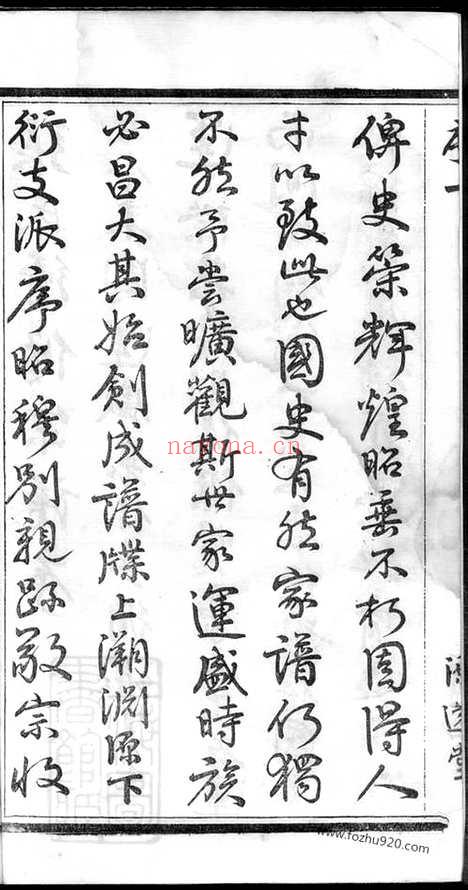 序一
俾史策輝煌昭垂不朽固得人
才以致此也國史有然家譜何獨
不然予嘗曠觀斯世家運盛時族
必昌大其始創成譜牒上溯淵源下
衍支派序昭穆別親疎敬宗收
nayona.cn
www.fozhu920.com